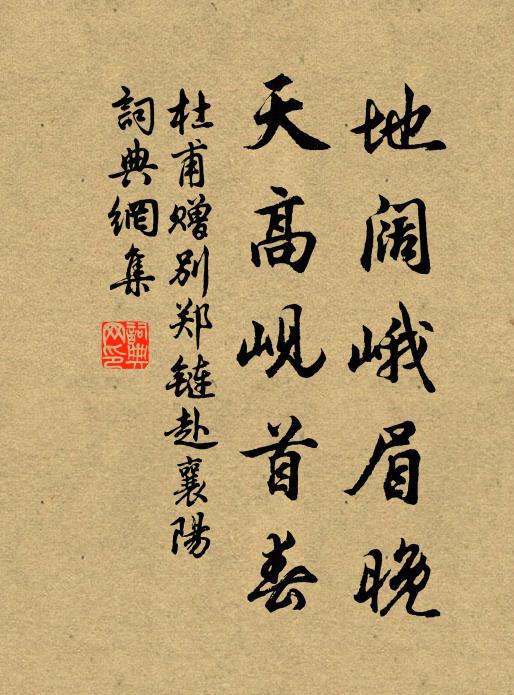 地阔峨眉晚
天高岘首春
杜甫赠别郑链赴襄陽
詞典網集
詞典
网印